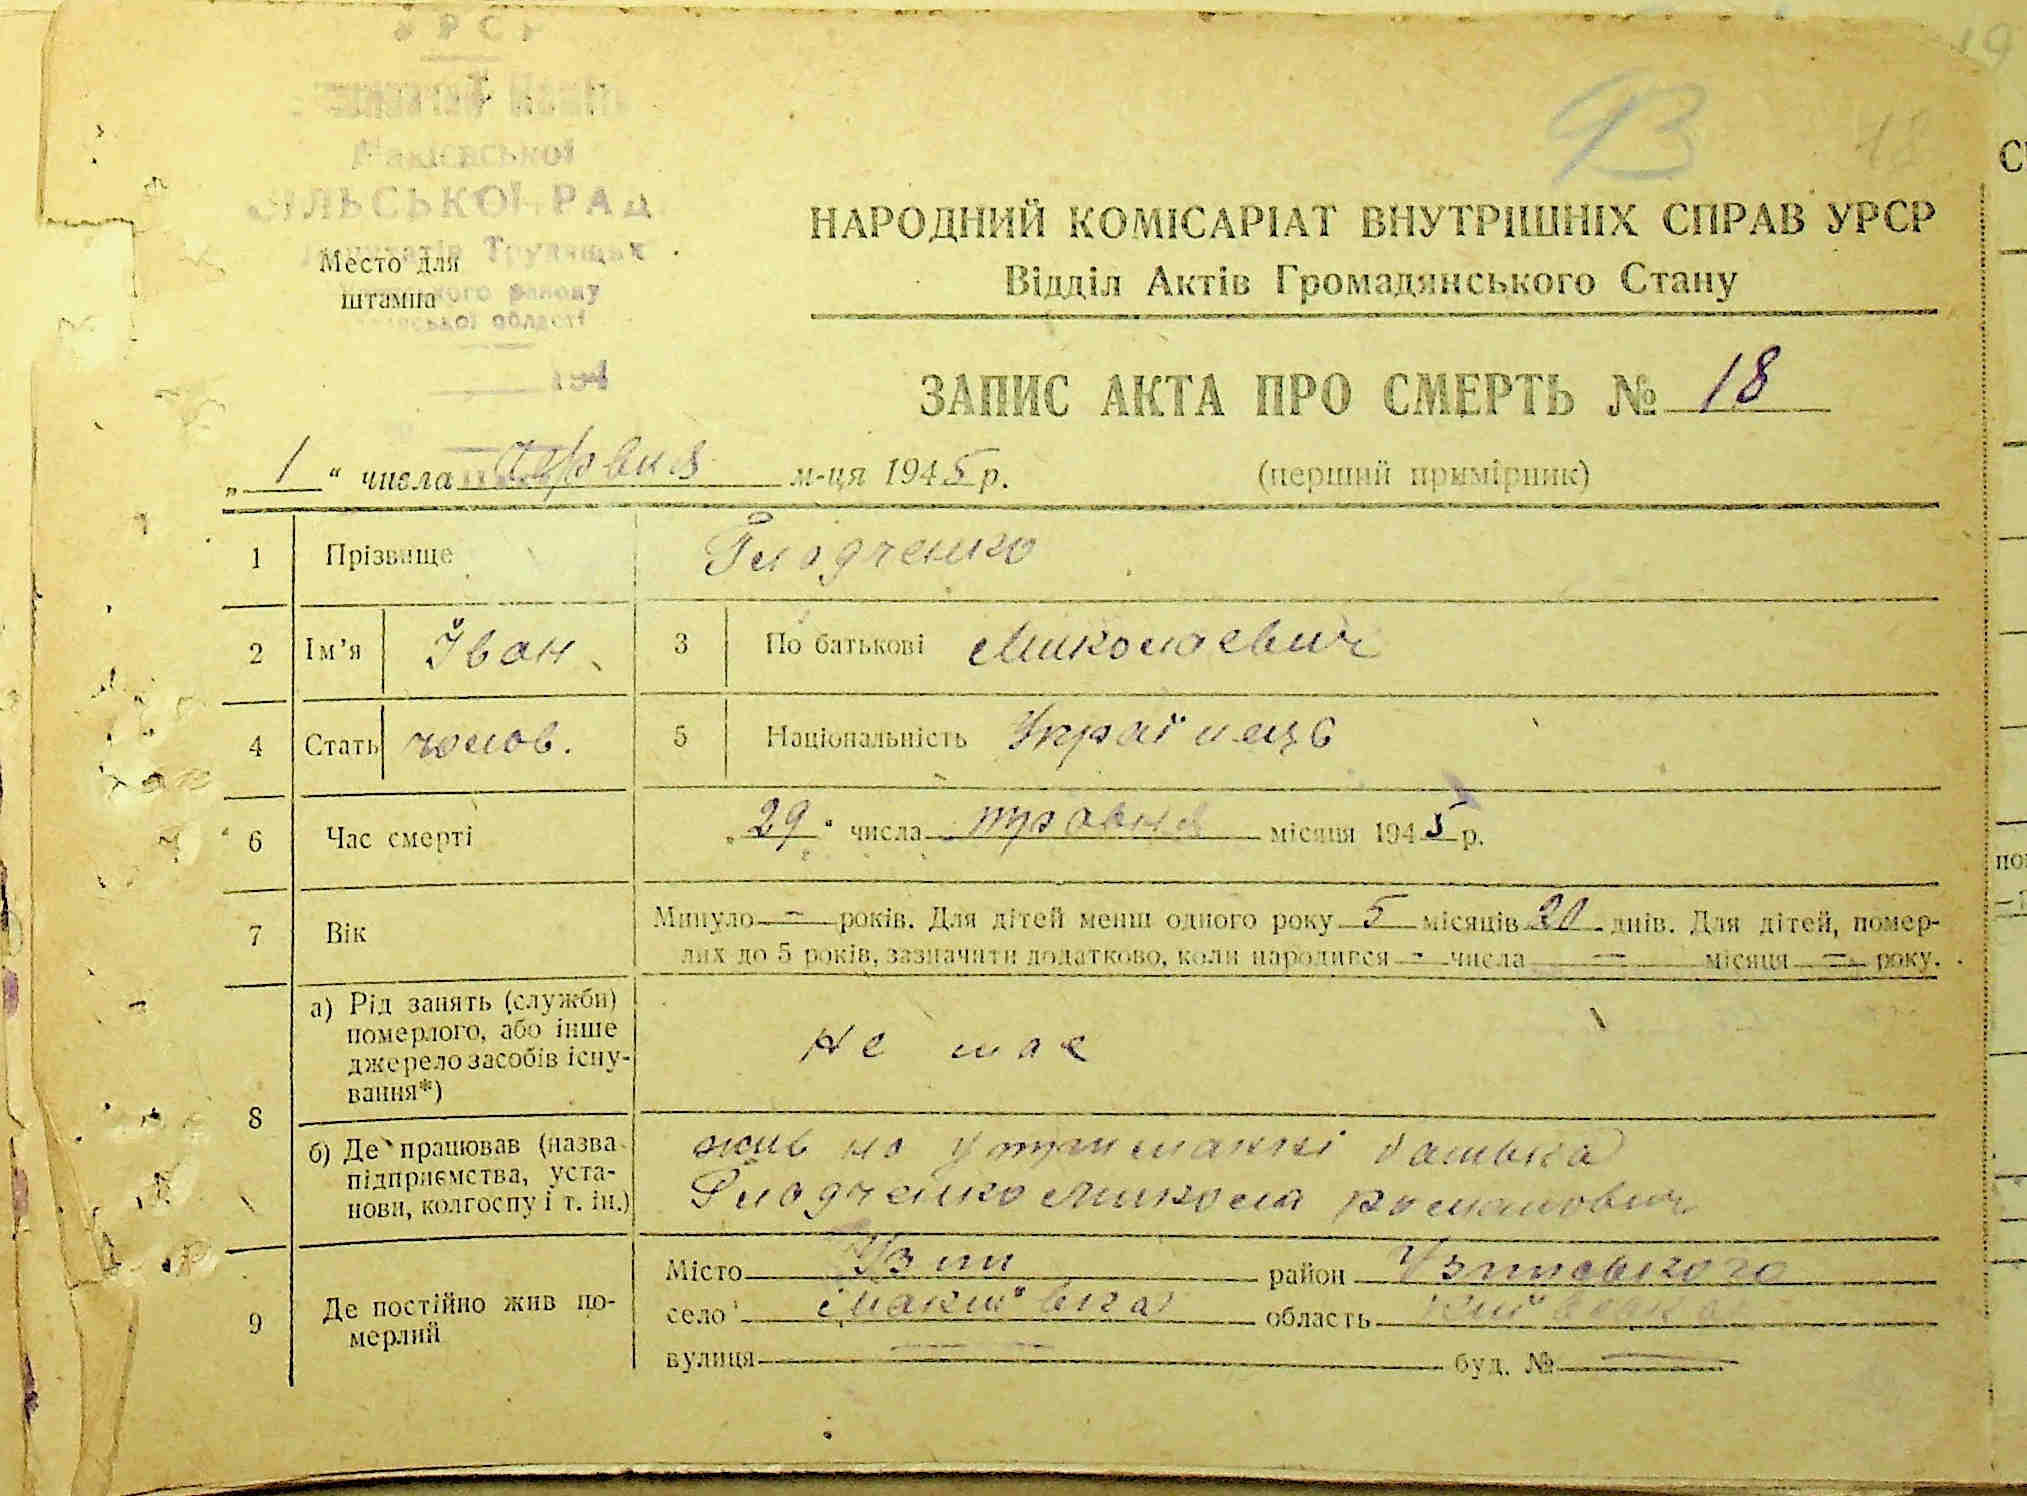 УРСР
Макіївської
СІЛЬСЬКОЇ РАД
Депутатів Трудящих
району
області
194
Место для
штампа
93
18
19
НАРОДНИЙ КОМІСАРІАТ ВНУТРІШНІХ СПРАВ УРСР
Відділ Актів Громадянського Стану
ЗАПИС АКТА ПРО СМЕРТЬ № 18
„ 1 “ числа червня м-ця 1945 р. (перший примірник)
1 Прізвище Гладченко
2 Ім’я Іван 3 По батькові Миколаєвич
4 Стать чолов. 5 Національність Українець
6 Час смерті „ 29 “ числа травня місяця 1945 р.
7 Вік Минуло - років. Для дітей менш одного року 5 місяців 20 днів. Для дітей, помер-
лих до 5 років, зазначити додатково, коли народився - числа — місяця — року.
8 а) Рід занять (служби)
померлого, або інше
джерело засобів існу-
вання*)
не має
б) Де працював (назва
підприємства, уста-
нови, колгоспу і т. ін.)
жив на утриманні батька
Гладченко Микола романович
9 Де постійно жив по-
мерлий
Місто Узин район Узинського
село Макиївка область Київська
вулиця — буд. № —